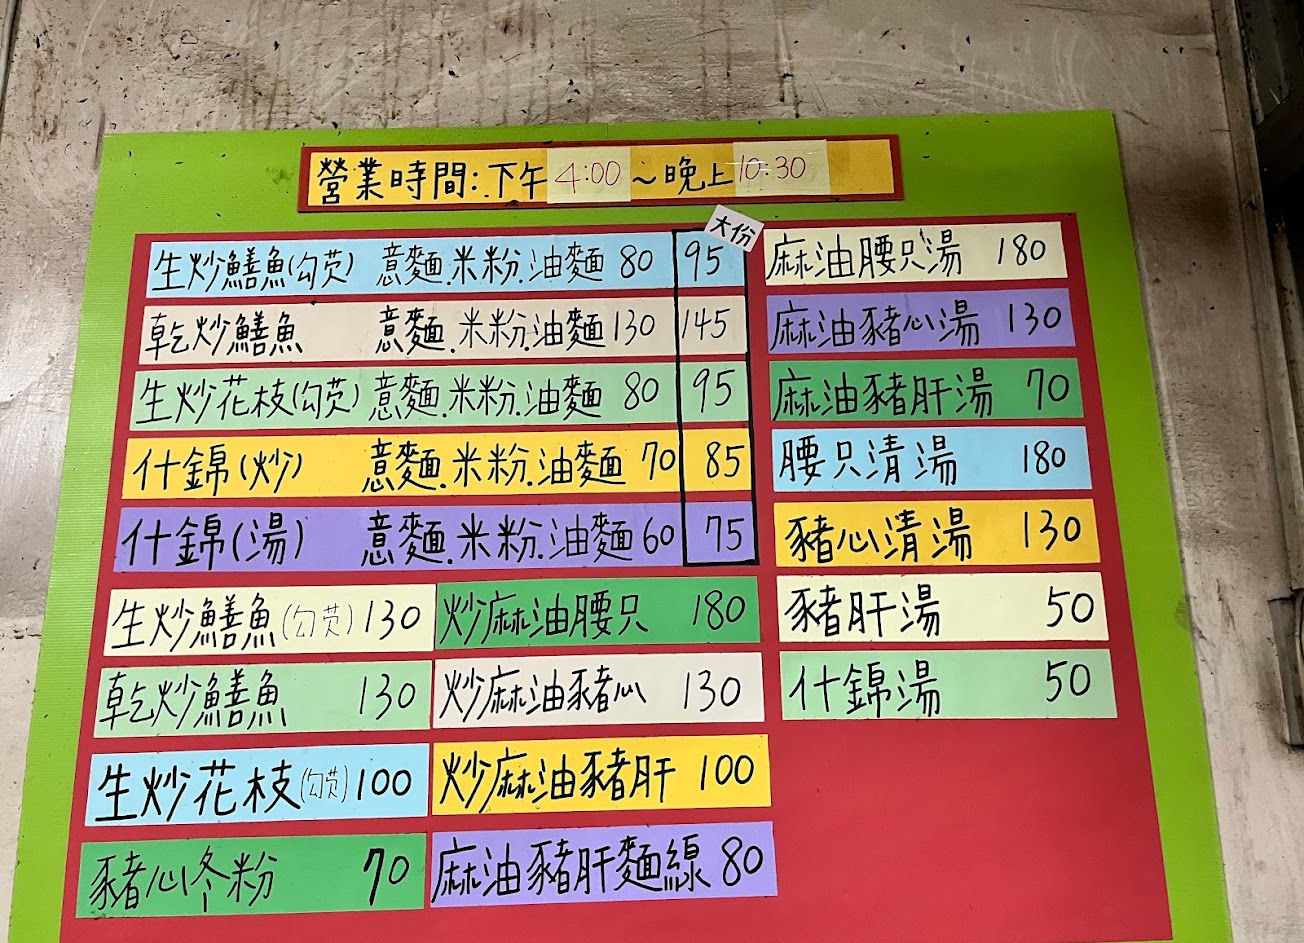 營業時間:下午4:00~晚上10:30
大份
生炒鱔魚(勾芡) 意麵.米粉.油麵 80 95
乾炒鱔魚 意麵.米粉.油麵 130 145
生炒花枝(勾芡) 意麵.米粉.油麵 80 95
什錦(炒) 意麵.米粉.油麵 70 85
什錦(湯) 意麵.米粉.油麵 60 75
生炒鱔魚(勾芡) 130
乾炒鱔魚 130
生炒花枝(勾芡) 100
豬心冬粉 70
炒麻油腰只 180
炒麻油豬心 130
炒麻油豬肝 100
麻油豬肝麵線 80
麻油腰只湯 180
麻油豬心湯 130
麻油豬肝湯 70
腰只清湯 180
豬心清湯 130
豬肝湯 50
什錦湯 50